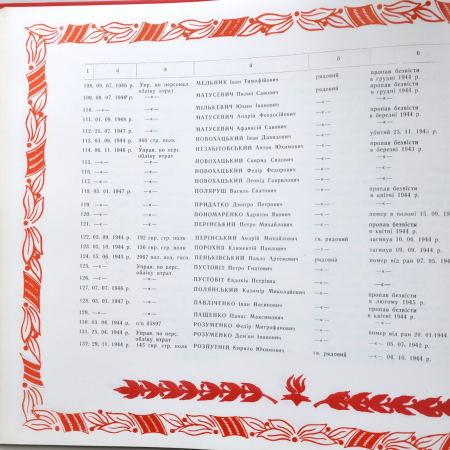 1 2 3 4 5 6
108. 09. 07. 1946 р. Упр. по персонал. обліку втрат МЕЛЬНИК Іван Тимофійович рядовий пропав безвісти в грудні 1944 р.
109. 09. 07. 1946 р. —«— МАТУСЕВИЧ Пилип Савович рядовий пропав безвісти в грудні 1944 р.
110. —«— —«— МІЛЬКЕВИЧ Юхим Іванович —«— пропав безвісти
111. 01. 09. 1948 р. —«— МАТУСЕВИЧ Андрій Феодосійович —«— в березні 1944 р.
112. 25. 07. 1947 р. —«— МАТУСЕВИЧ Афанасій Савович —«—
113. 03. 06. 1944 р. 960 стр. полк НОВОХАЦЬКИЙ Іван Данилович —«— убитий 23. 11. 1943 р.
114. 06. 11. 1946 р. Управ. по перс. обліку втрат НЕЗАБИТОВСЬКИЙ Антон Юхимович —«— пропав безвісти в березні 1943 р.
115. —«— —«— НОВОХАЦЬКИЙ Свирид Силович —«— —«—
116. —«— —«— НОВОХАЦЬКИЙ Федір Федорович —«— —«—
117. —«— —«— НОВОХАЦЬКИЙ Леонід Гаврилович —«— —«—
118. 03. 01. 1947 р. —«— ПОЛЯРУШ Василь Гнатович —«— пропав безвісти в квітні 1944 р.
119. —«— —«— ПРИДАТКО Дмитро Петрович —«— —«—
120. —«— —«— ПОНОМАРЕНКО Харитон Якович —«— помер в полоні 15. 09. 19
121. —«— —«— ПЕРІНСЬКИЙ Петро Михайлович —«— пропав безвісти в квітні 1944 р.
122. 05. 09. 1944 р. 192 гвр. стр. полк ПЕРІНСЬКИЙ Андрій Михайлович гв. рядовий загинув 10. 06. 1944 р.
123. 03. 10. 1944 р. 136 гвр. стр. полк ПОРОХНЯ Климентій Павлович —«— загинув 09. 09. 1944 р.
124. 15. 06. 1945 р. 2067 вал. под. госп. ПЕНЬКІВСЬКИЙ Павло Артемович рядовий помер від ран 07. 05. 194
125. —«— Управ. по перс. обліку втрат ПУСТОВІТ Петро Гнатович —«— —«—
126. —«— —«— ПУСТОВІТ Євдокія Петрівна —«— —«—
127. 07. 07. 1946 р. —«— ПОЛЯНСЬКИЙ Казимір Миколайович —«— пропав безвісти в лютому 1945 р.
128. 03. 01. 1947 р. —«— ПАВЛІЧЕНКО Іван Йосипович —«— пропав безвісти
129. —«— —«— ПАЩЕНКО Панас Максимович —«— в квітні 1944 р.
130. 03. 06. 1944 р. п/п 05997 РОЗУМЕНКО Федір Митрофанович —«— помер від ран 20. 01. 1944
131. 25. 04. 1944 р. Управ. по перс. обліку втрат РОЗУМЕНКО Дем'ян Іванович —«— —«— 05. 07. 1942 р.
132. 29. 11. 1944 р. 145 гвр. стр. полк РОЗПУТНІЙ Кирило Юхимович гв. рядовий —«— 04. 10. 1944 р.